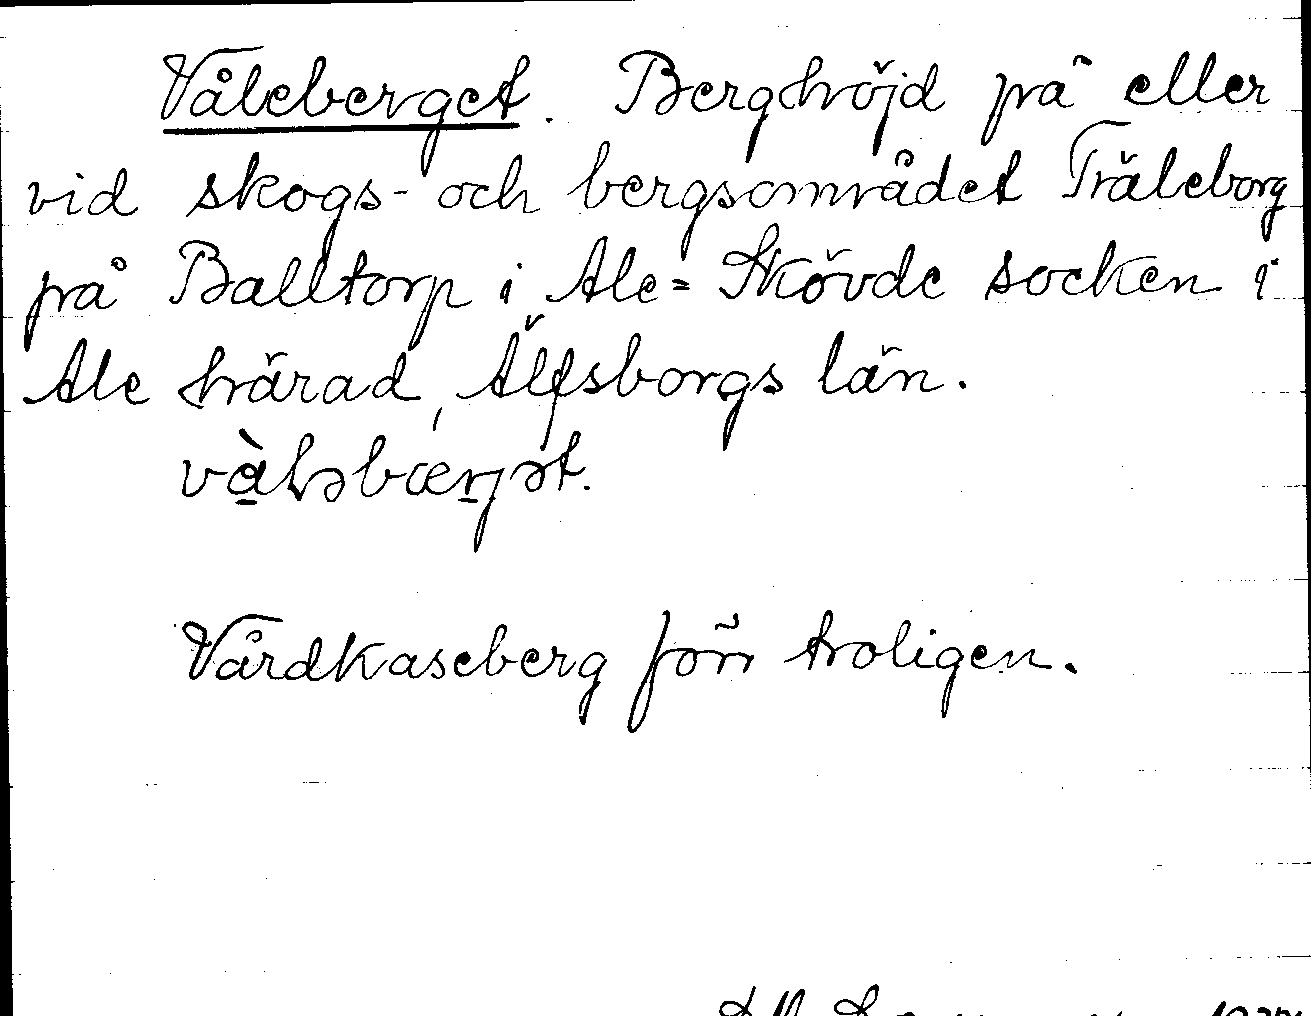 Våleberget. Berghöjd på eller
vid skogs- och bergsområdet Träleborg
på Balltorp i Ale-Skövde socken i
Ale härad, Älfsborgs län.
vàləbærjət.
Vårdkaseberg förr troligen.